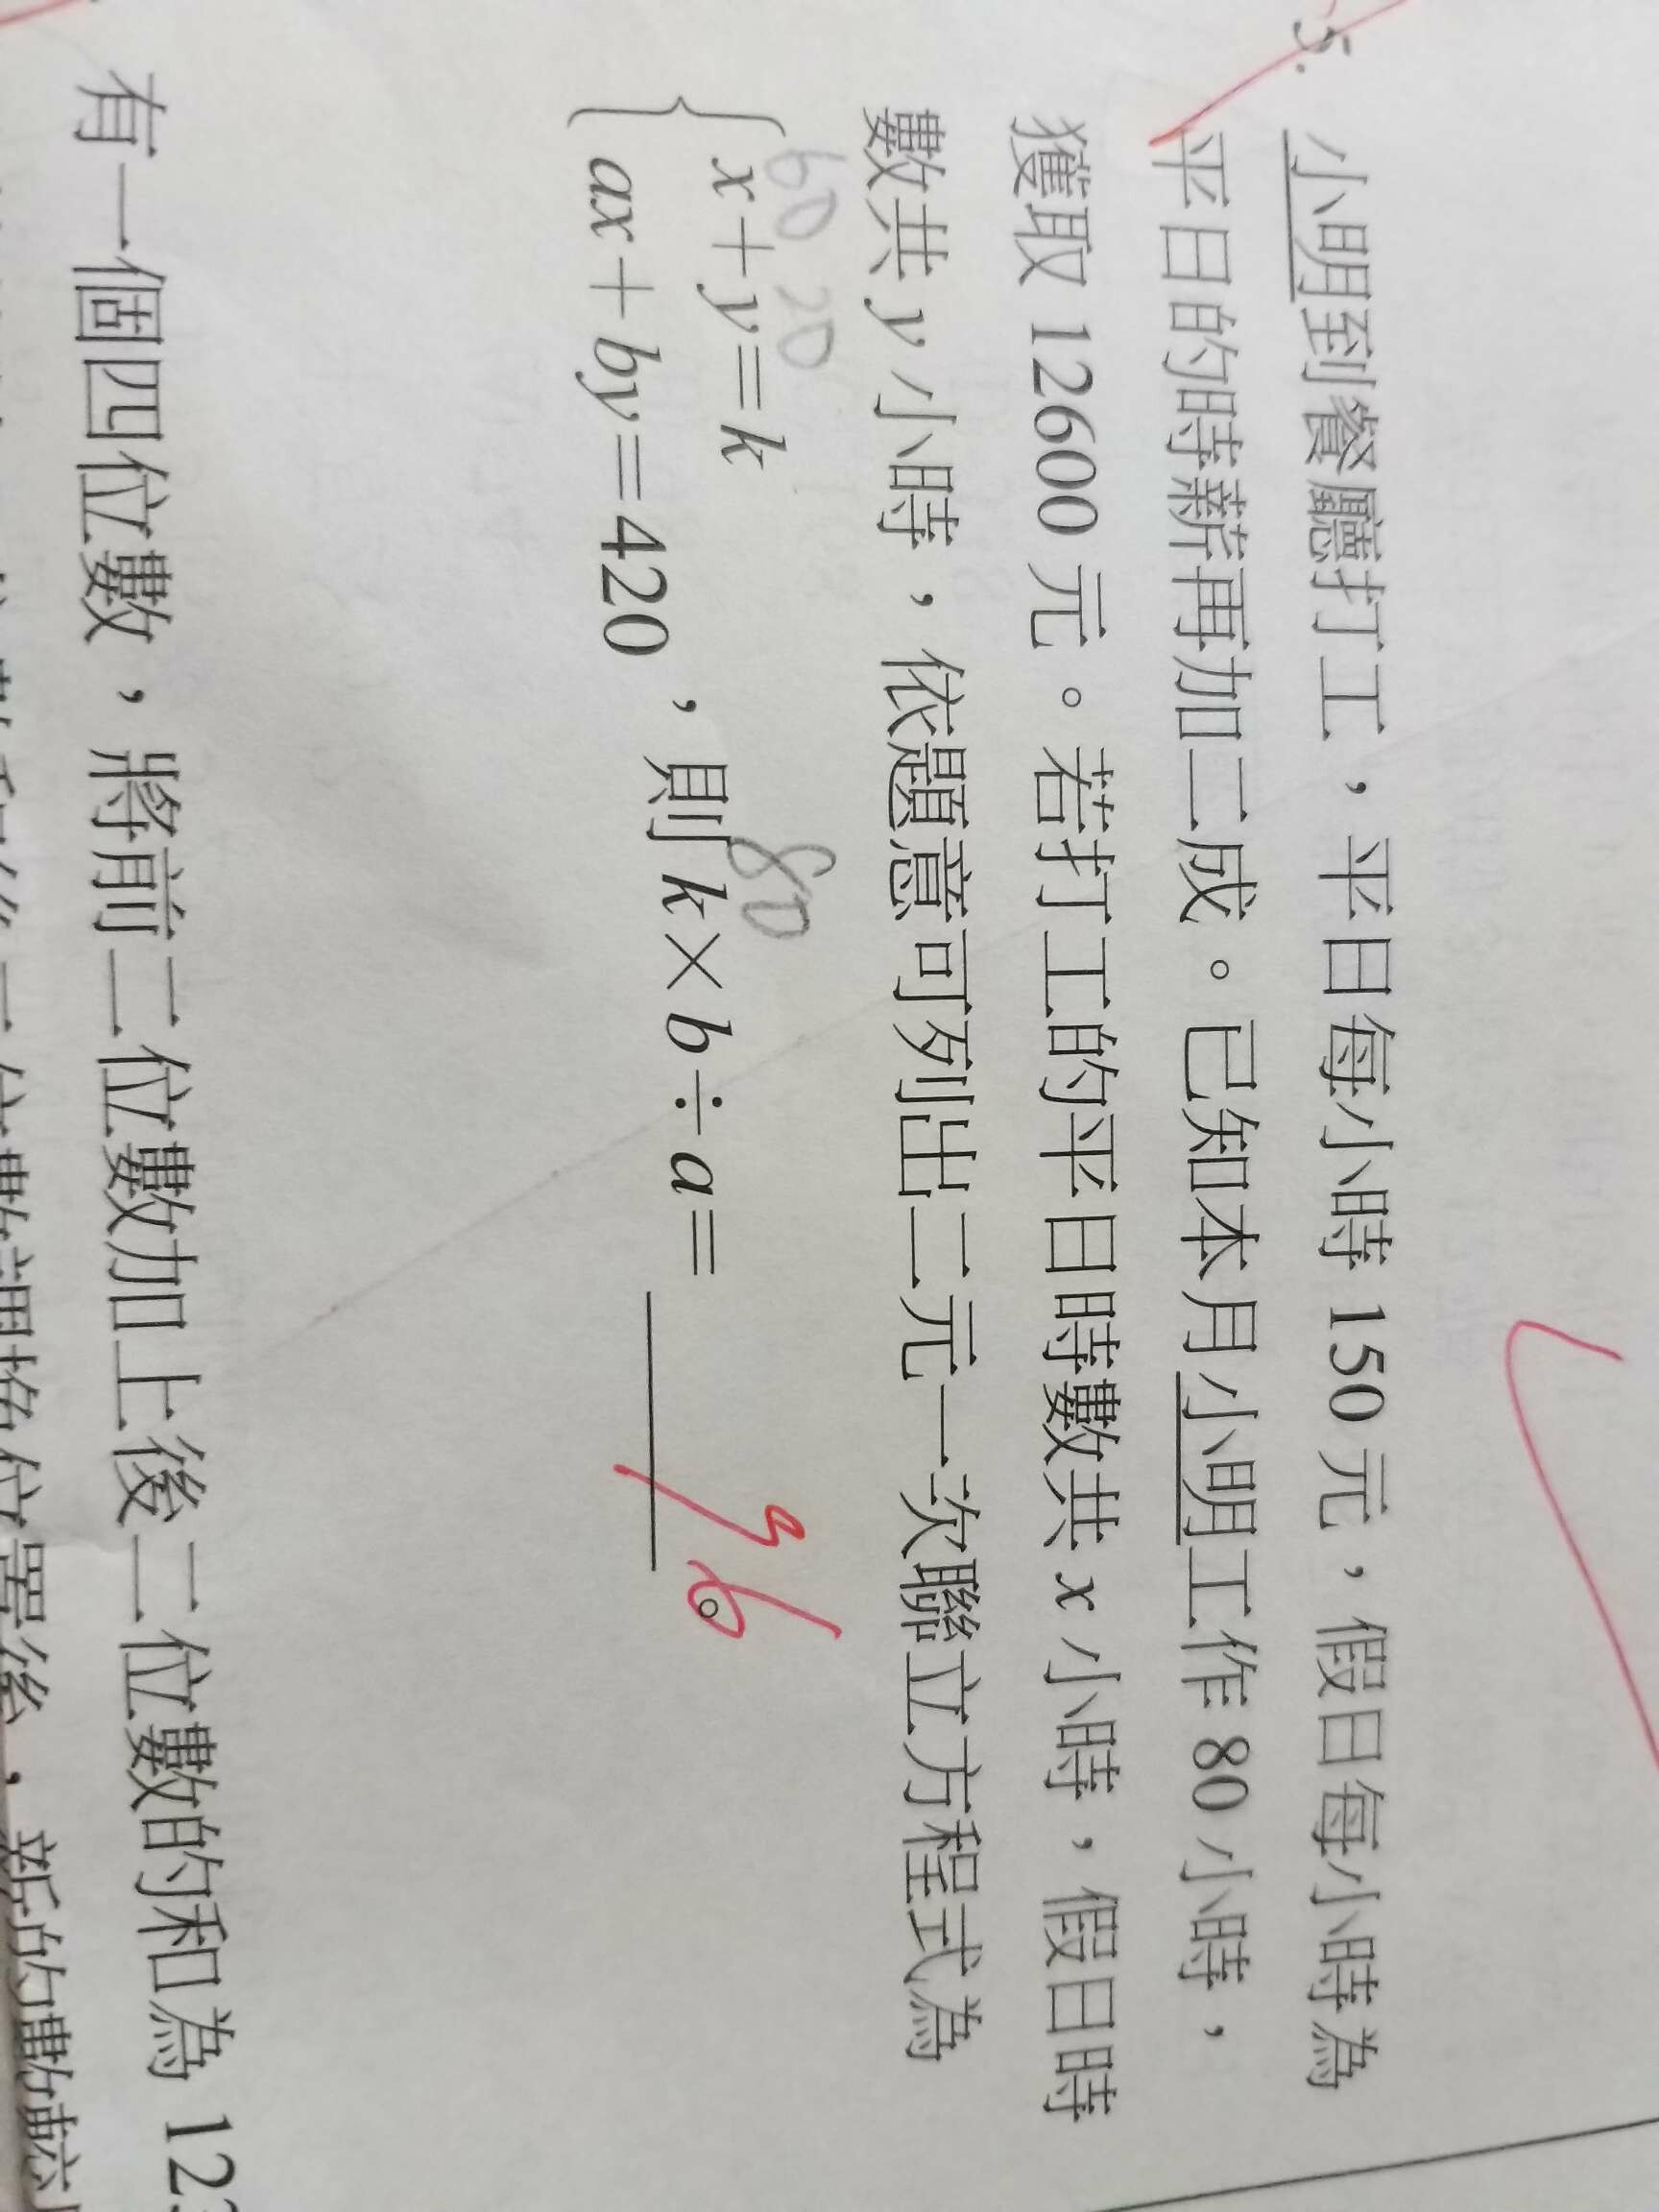 5.
小明到餐廳打工，平日每小時 150 元，假日每小時為
平日的時薪再加二成。已知本月小明工作 80 小時，
獲取 12600 元。若打工的平日時數共 x 小時，假日時
數共 y 小時，依題意可列出二元一次聯立方程式為
60 20
x＋y＝k
80
ax＋by＝420 ，則 k×b÷a＝ 。
96
有一個四位數，將前二位數加上後二位數的和為 123
位置後，新的數